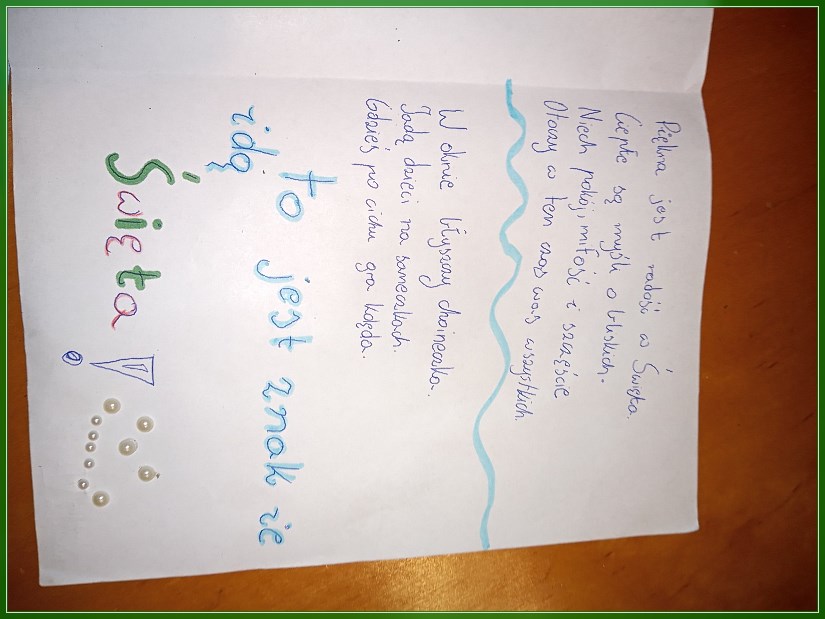 Piękna jest radość w Święta.
Ciepłe są myśli o bliskich.
Niech pokój, miłość i szczęście
Otoczy w ten czas was wszystkich.
W oknie błyszczy choineczka.
Jadą dzieci na saneczkach.
Gdzieś po cichu gra kolęda.
to jest znak że
idą
Święta!